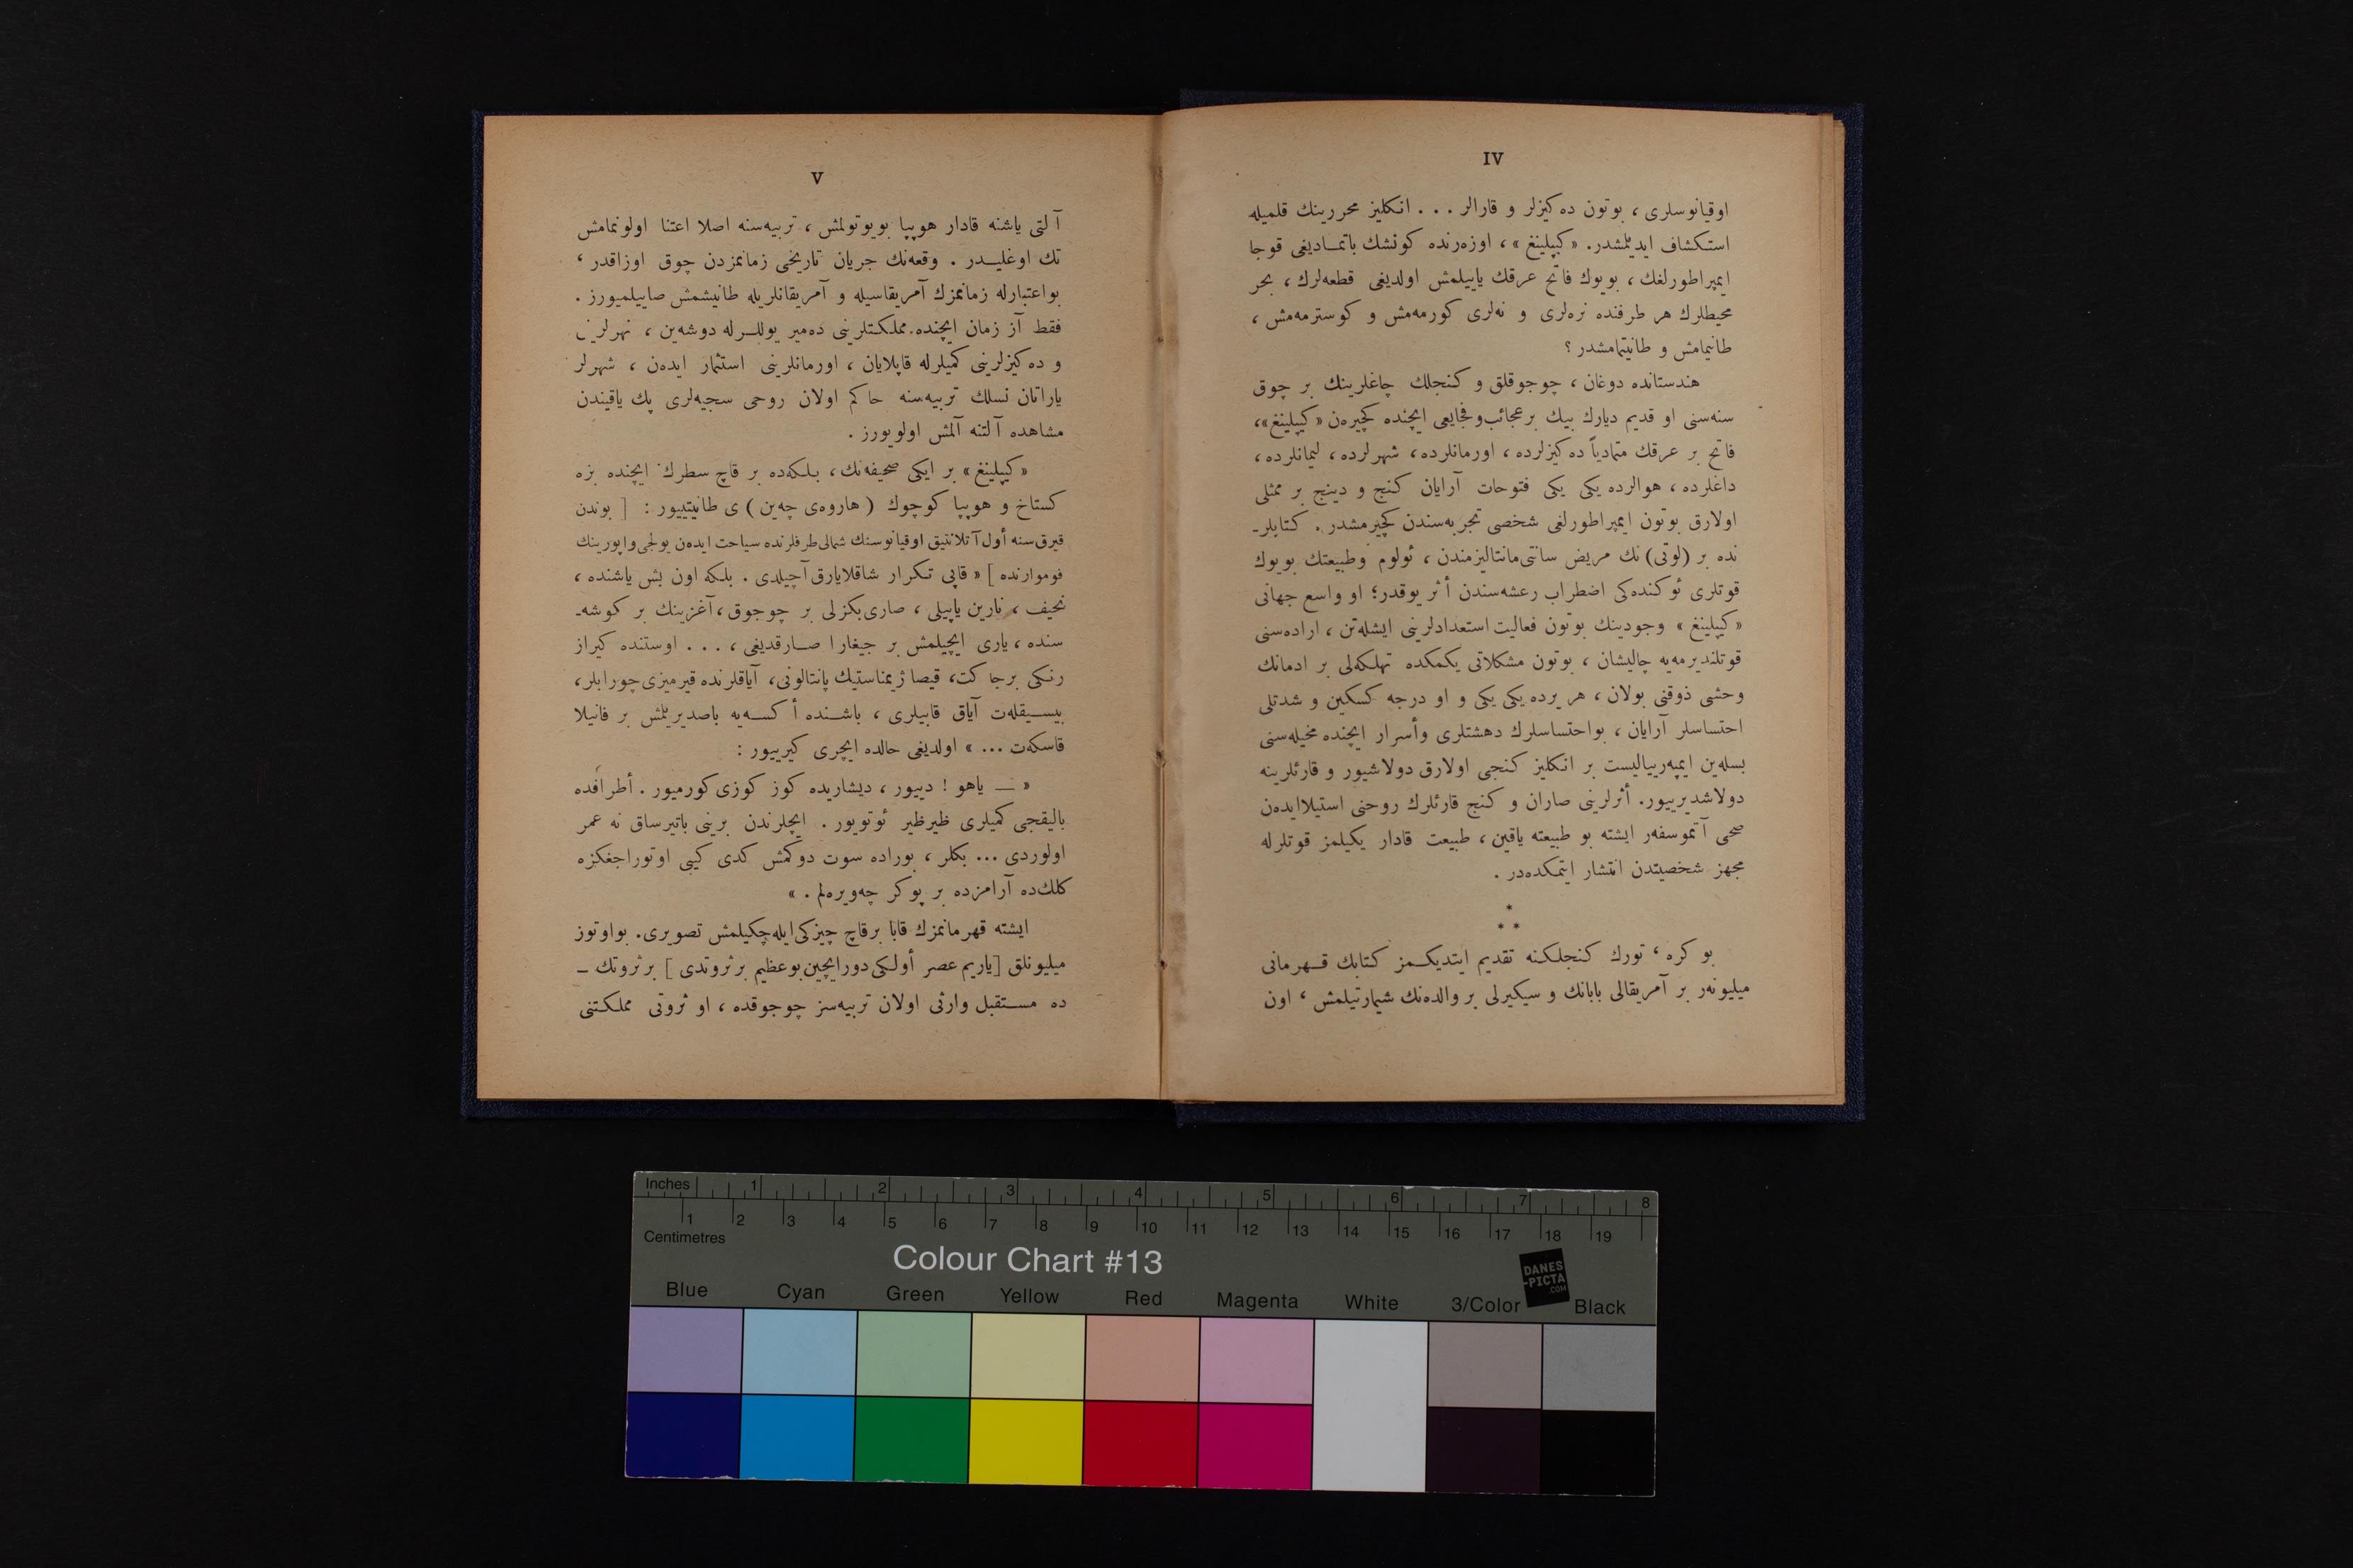 IV
اوقيانوسلرى ، بوتون ده‌كيزلر و قارالر . . . انكليز محررينك قلميله
استكشاف ايديلمشدر. «كيپلينغ» ، اوزه‌رنده كونشك باتماديغى قوجا
ايمپراطورلغك ، بويوك فاتح عرقك ياييلمش اولديغى قطعه‌لرك ، بحر
محيطلرك هر طرفنده نره‌لرى و نه‌لرى كورمه‌مش و كوسترمه‌مش ،
طانيمامش و طانيتمامشدر ؟
هندستانده دوغان ، چوجوقلق و كنجلك چاغلرينك بر چوق
سنه‌سنى او قديم ديارك بيك بر عجائب و فجايعى ايچنده كچيره‌ن «كيپلينغ»،
فاتح بر عرقك متمادياً ده‌كيزلرده ، اورمانلرده ، شهرلرده ، ليمانلرده ،
داغلرده ، هوالرده يكى يكى فتوحات آرايان كنج و دينج بر ممثلى
اولارق بوتون ايمپراطورلغى شخصى تجربه‌سندن كچيرمشدر . كتابلر-
نده بر (لوتى) نك مريض سانتى‌مانتاليزمندن ، ئولوم و طبيعتك بويوك
قوتلرى ئوكنده‌كى اضطراب رعشه‌سندن أثر يوقدر؛ او واسع جهانى
«كيپلينغ» وجودينك بوتون فعاليت استعدادلرينى ايشله‌تن ، اراده‌سنى
قوتلنديرمه‌يه چاليشان ، بوتون مشكلاتى يكمكده تهلكه‌لى بر ادمانك
وحشى ذوقنى بولان ، هر يرده يكى يكى و او درجه كسكين و شدتلى
احتساسلر آرايان ، بو احتساسلرك دهشتلرى وأسرار ايچنده مخيله‌سنى
بسله‌ين ايمپه‌رياليست بر انكليز كنجى اولارق دولاشيور و قارئلرينه
دولاشديرييور. أثرلرينى صاران و كنج قارئلرك روحنى استيلا ايده‌ن
صحى آتموسفه‌ر ايشته بو طبيعته ياقين ، طبيعت قادار يكيلمز قوتلرله
مجهز شخصيتدن انتشار ايتمكده‌در .
*
* *
بو كره ، تورك كنجلكنه تقديم ايتديكمز كتابك قهرمانى
ميليونه‌ر بر آمريقالى بابانك و سيكيرلى بر والده‌نك شيمارتيلمش ، اون
V
آلتى ياشنه قادار هوپپا بويوتولمش ، تربيه‌سنه اصلا اعتنا اولونمامش
تك اوغليدر . وقعه‌نك جريان تاريخى زمانمزدن چوق اوزاقدر ،
بواعتبارله زمانمزك آمريقاسيله و آمريقانلريله طانيشمش صاييلميورز .
فقط آز زمان ايچنده مملكتلرينى ده‌مير يوللرله دوشه‌ين ، نهرلرينى
و ده‌كيزلرينى كميلرله قاپلايان ، اورمانلرينى استثمار ايده‌ن ، شهرلر
ياراتان نسلك تربيه‌سنه حاكم اولان روحى سجيه‌لرى پك ياقيندن
مشاهده آلتنه آلمش اولويورز .
«كيپلينغ» بر ايكى صحيفه‌نك ، بلكه‌ده بر قاچ سطرك ايچنده بزه
كستاخ و هوپپا كوچوك (هاروه‌ى چه‌ين) ى طانيتييور : [ بوندن
قيرق سنه أول آتلانتيق اوقيانوسنك شمالى طرفلرنده سياحت ايده‌ن يولجى واپورينك
فوموارنده ] « قاپى تكرار شاقلايارق آچيلدى . بلكه اون بش ياشنده ،
نحيف ، نارين ياپيلى ، صارى بكزلى بر چوجوق ، آغزينك بر كوشه-
سنده ، يارى ايچيلمش بر جيغارا صارقديغى ، . . . اوستنده كيراز
رنكى برجاكت، قيصا ژيمناستيك پانتالونى، آياقلرنده قيرميزى چورابلر،
بيسيقله‌ت آياق قابيلرى ، باشنده أكسه‌يه باصديريلمش بر فانيلا
قاسكه‌ت ... » اولديغى حالده ايچرى كيرييور :
« — ياهو ! دييور ، ديشاريده كوز كوزى كورميور . أطرافده
باليقجى كميلرى ظيرظير ئوتويور . ايچلرندن برينى باتيرساق نه عمر
اولوردى ... بكلر ، بوراده سوت دوكمش كدى كيبى اوتوراجغكزه
كلك‌ده آرامزده بر پوكر چه‌ويره‌لم . »
ايشته قهرمانمزك قابا بر قاچ چيزكى ايله چكيلمش تصويرى. بو اوتوز
ميليونلق [ياريم عصر أولكى دور ايچين بو عظيم بر ثروتدى] بر ثروتك —
ده مستقبل وارثى اولان تربيه‌سز چوجوقده ، او ثروتى مملكتنى
Inches 1 2 3 4 5 6 7 8
1 2 3 4 5 6 7 8 9 10 11 12 13 14 15 16 17 18 19
Centimetres
Colour Chart #13
DANES
-PICTA
.COM
Blue Cyan Green Yellow Red Magenta White 3/Color Black